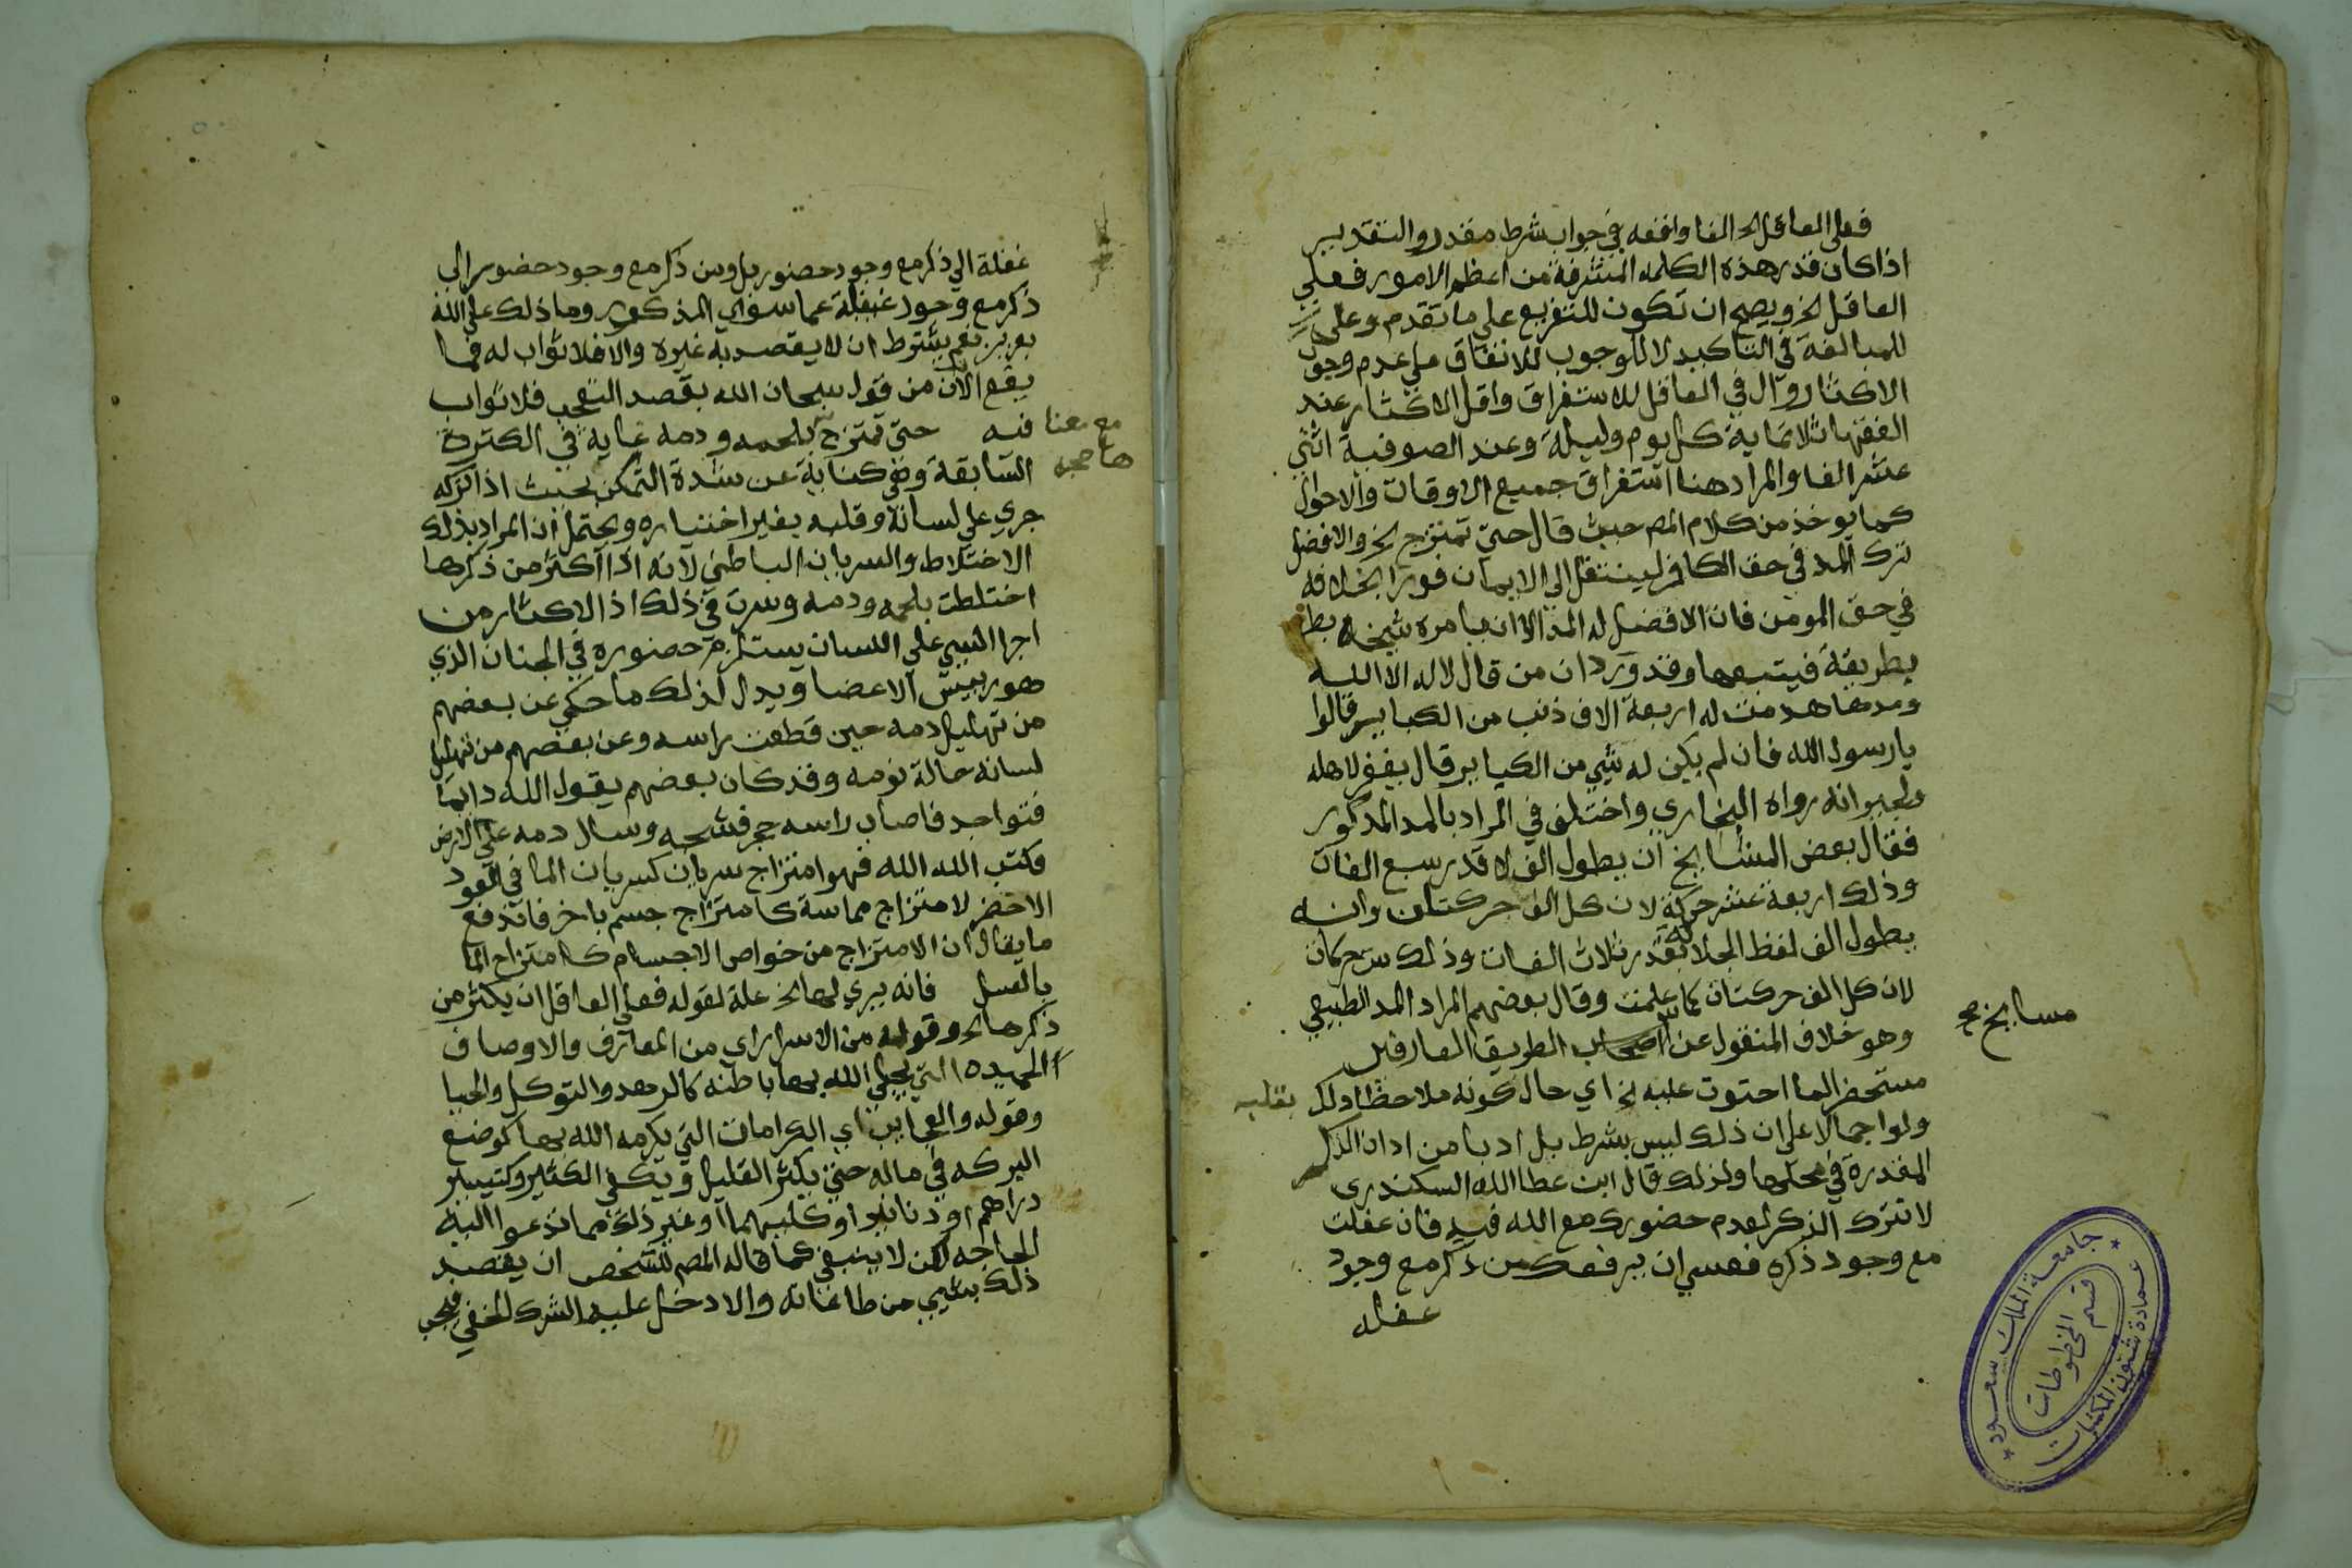 فعلى العاقل الخ الفا واقعه في جواب شرط مقدر والتقدير
اذا كان قدر هذه الكلمه المشرفة من اعظم الامور فعلي
العاقل الخ ويصح ان تكون للتفريع علي ما تقدم وعلى
للمبالغة في التاكيد لا للوجوب للاتفاق علي عدم وجوب
الاكثار وال في العاقل للاستغراق واقل الاكثار عند
الفقها ثلاثماية كل يوم وليلة وعند الصوفية اثني
عشر الفا والمراد هنا استغراق جميع الاوقات والاحوال
كما يوخذ من كلام المص حيث قال حتي تمتزج الخ والافضل
ترك المد في حق الكافر لينتقل الي الايمان فورا بخلافه
في حق المومن فان الافضل له المد الا ان يامره شيخه بط
بطريقة فيتبعها وقد ورد ان من قال لا اله الا الله
ومدها هدمت له اربعة الاف ذنب من الكباير قالوا
يا رسول الله فان لم يكن له شيي من الكباير قال يغفر لاهله
ولجيرانه رواه البخاري واختلف في المراد بالمد المذكور
فقال بعض المشايخ ان يطول الف لا قدر سبع الفات
وذلك اربعة عشر حركة لان كل الف حركتان وانه
يطول الف لفظ الجلالة بقدر ثلاث الفات وذلك ست حركات
لان كل الف حركتان كما علمت وقال بعضهم المراد المد الطبيعي
مسايخ صح
وهو خلاف المنقول عن اصحاب الطريق العارفين
مستحضر الما احتوت عليه الخ اي حال كونه ملاحظا ذلك بقلبه
ولو اجمالا علي ان ذلك ليس بشرط بل ادبا من اداب الذكر
المقدرة في محلها ولذلك قال ابن عطا الله السكندري
لا تترك الذكر لعدم حضورك مع الله فيه فان غفلت
مع وجود ذكره فعسي ان يرفعك من ذكر مع وجود
غفله
جامعة الملك سعود
قسم المخطوطات
عمادة شئون المكتبات
غفلة الي ذكر مع وجود حضور بل ومن ذكر مع وجود حضور الى
ذكر مع وجود غيبة عما سوي المذكور وما ذلك علي الله
بعزيز نعم يشترط ان لا يقصد به غيره والا فلا ثواب له فما
يقع الان من قول سبحان الله بقصد التعجب فلا ثواب
فيه حتى تمتزج بلحمه ودمه غاية في الكثرة
مع معنا
ها صح
السابقة وهي كناية عن شدة التمكن بحيث اذا تركه
جري علي لسانه وقلبه بغير اختياره ويحتمل ان المراد بذلك
الاختلاط والسريان الباطني لانه اذا اكثر من ذكرها
اختلطت بلحمه ودمه وسرت في ذلك اذ الاكثار من
اجرا الشيي علي اللسان يستلزم حضوره في الجنان الذي
هو رييس الاعضا ويدل لذلك ما حكي عن بعضهم
من تهليل دمه حين قطعت راسه وعن بعضهم من تهليل
لسانه حالة نومه وقد كان بعضهم يقول الله دايما
فتواجد فاصاب راسه حجر فشجه وسال دمه علي الارض
فكتب الله الله فهو امتزاج سريان كسريان الما في العود
الاخضر لا متزاج مماسة كامتزاج جسم باخر فاندفع
ما يقال ان الامتزاج من خواص الاجسام كامتزاج الما
بالعسل فانه يري لها الخ علة لقوله فعلي العاقل ان يكثر من
ذكرها الخ وقوله من الاسرار اي من المعارف والاوصاف
الحميده التي يحلي الله بها باطنه كالزهد والتوكل والحيا
وقوله والعجايب اي الكرامات التي يكرمه الله بها كوضع
البركه في ماله حتي يكثر القليل ويكفي الكثير وكتيسير
دراهم او دنانير او كليهما او غير ذلك مما تدعوا اليه
الحاجه لكن لا ينبغي كما قاله المص للشخص ان يقصد
ذلك بشيي من طاعاته والا دخل عليه الشرك الخفي